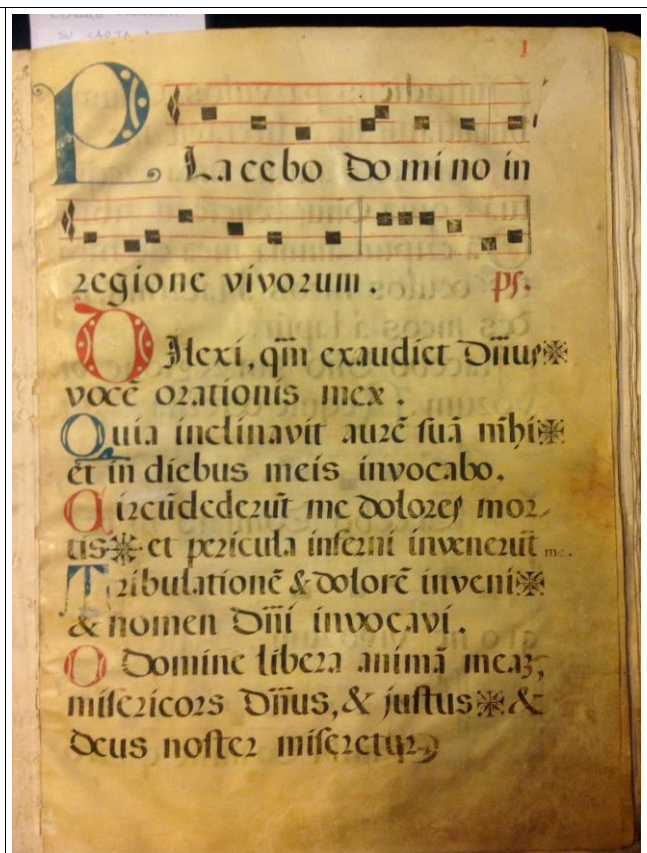 SU CARTA
1
Placebo Domino in
regione vivorum. ps.
Dilexi, qm̄ exaudiet Dn̄us
vocē orationis meæ.
Quia inclinavit aurē suā mihi
et in diebus meis invocabo.
Circūdederūt me dolores mor
tis et pericula inferni invenerūt me.
Tribulationē & dolorē inveni
& nomen Dn̄i invocavi.
O Domine libera animā meaz,
misericors Dn̄us, & justus &
Deus noster miseretur